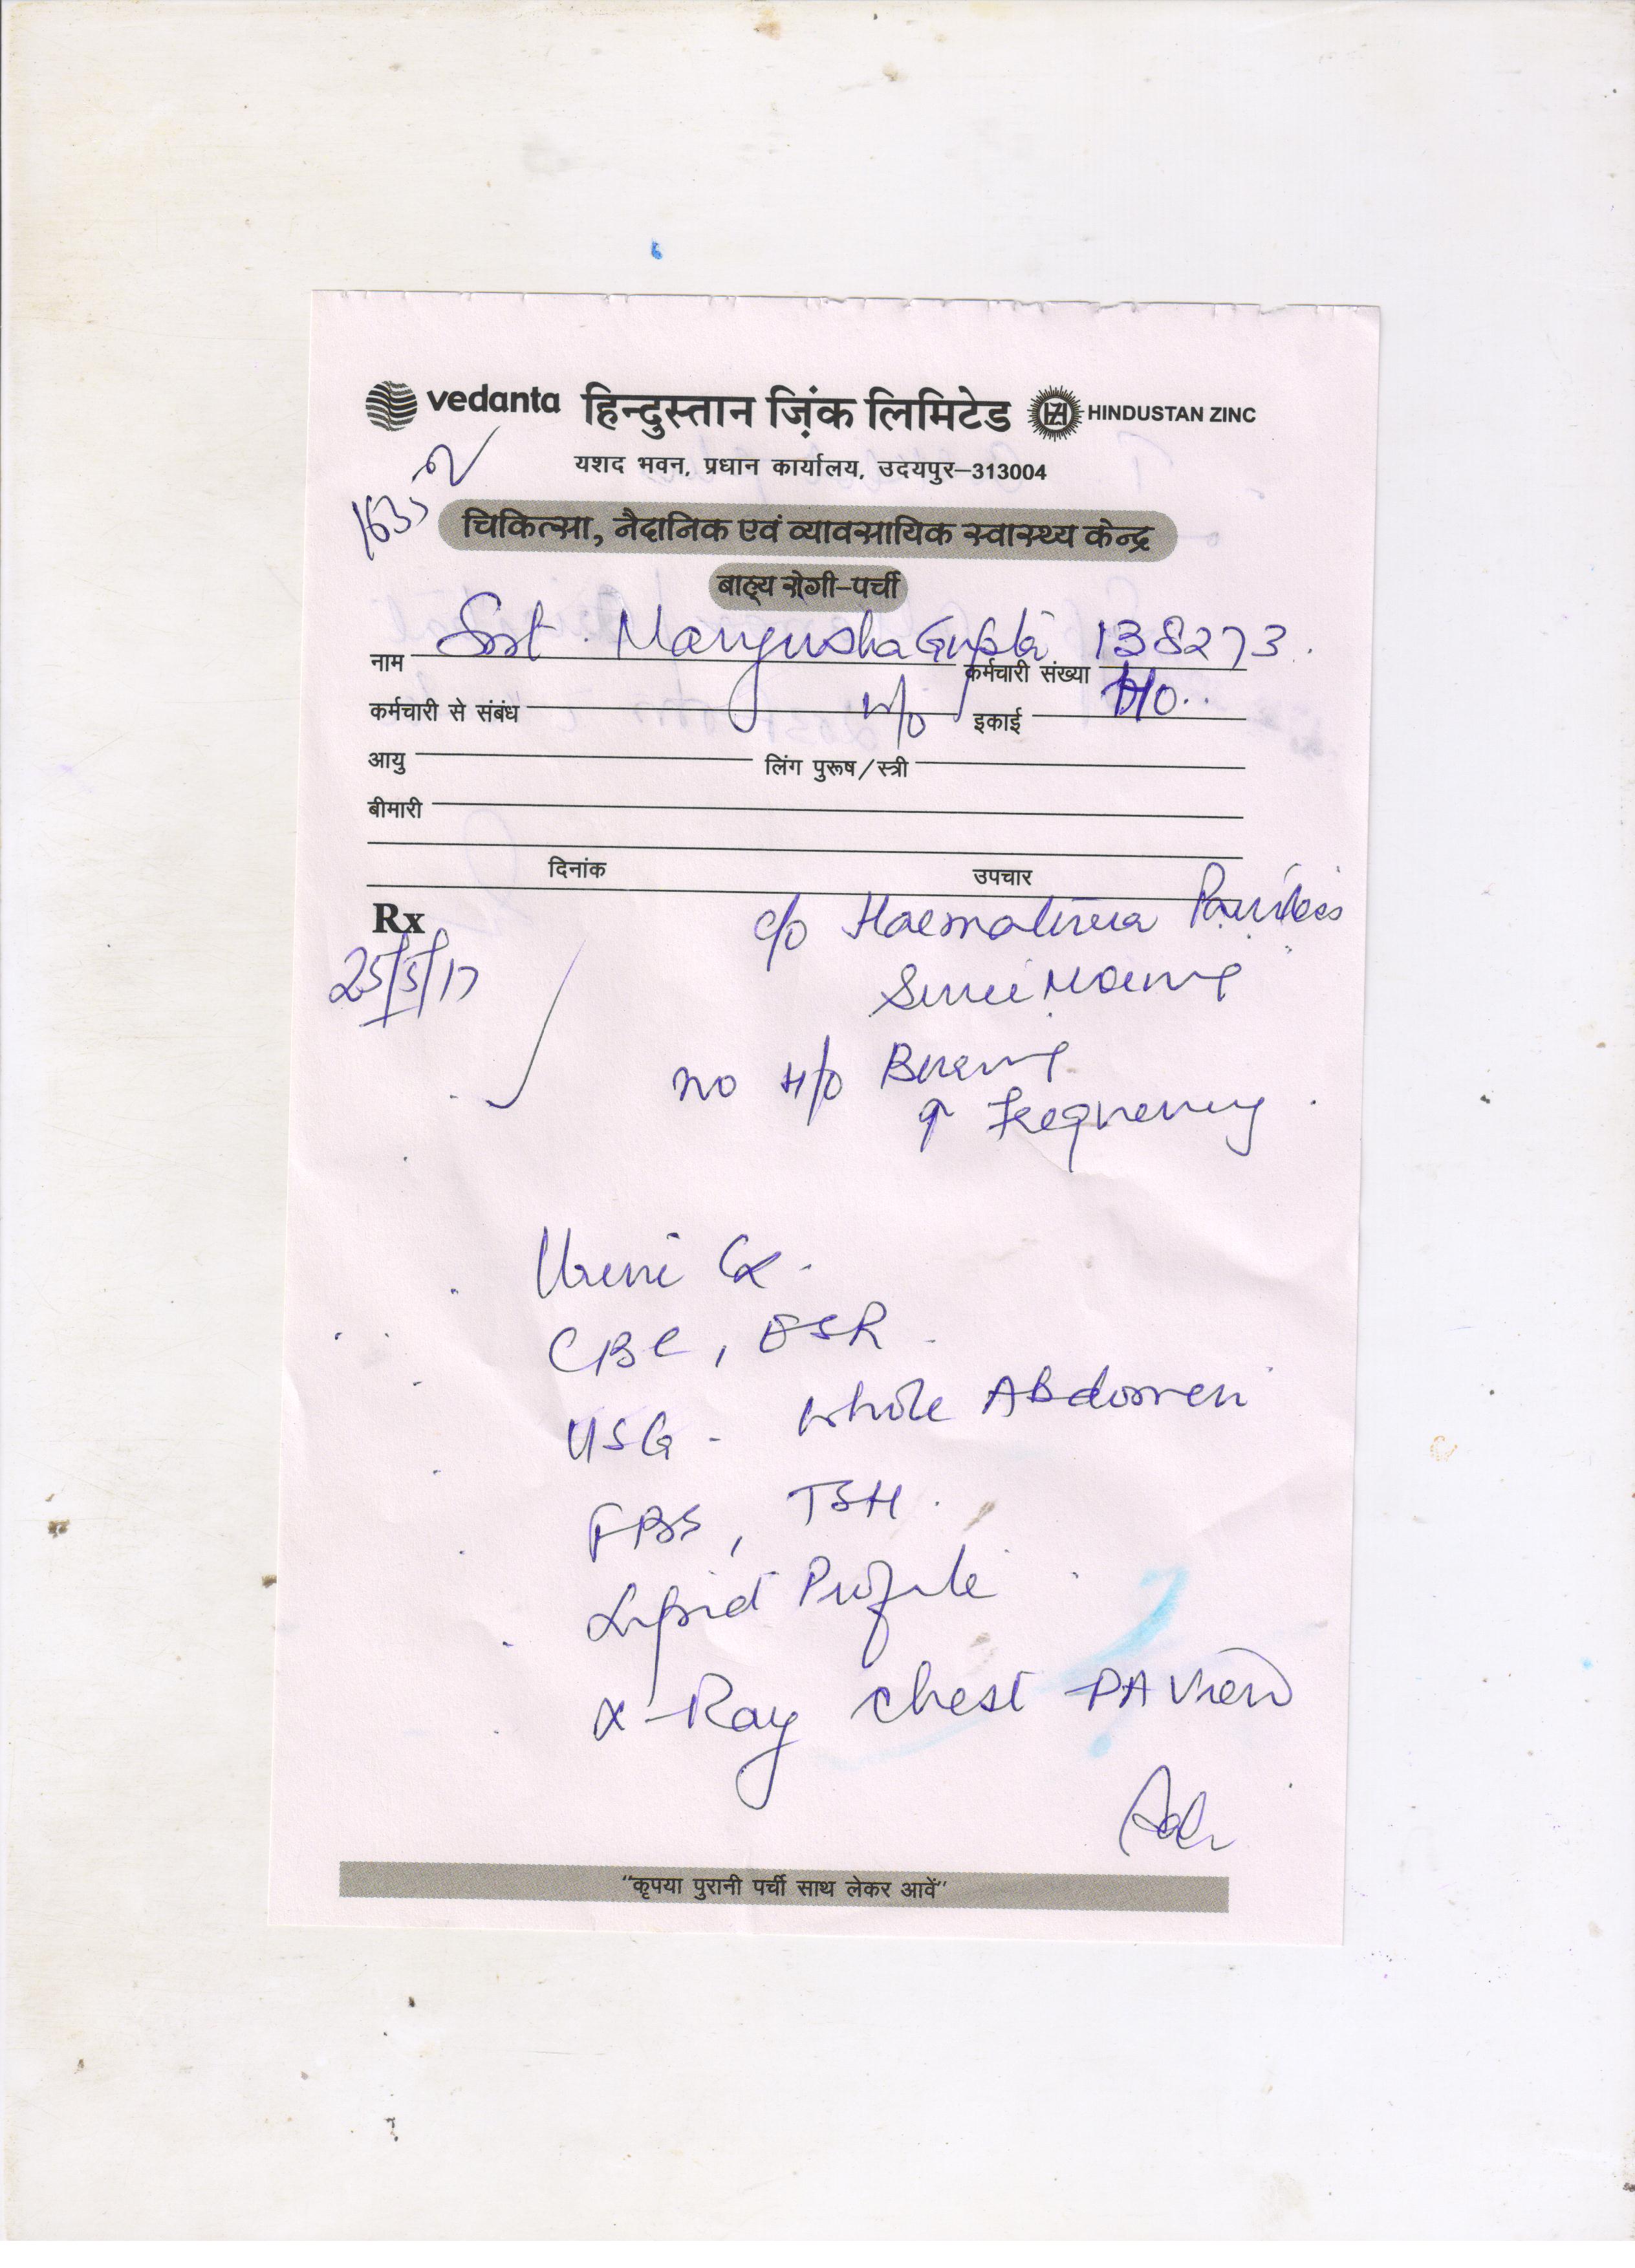 vedanta हिन्दुस्तान ज़िंक लिमिटेड HINDUSTAN ZINC
यशद भवन, प्रधान कार्यालय, उदयपुर–313004
चिकित्सा, नैदानिक एवं व्यावसायिक स्वास्थ्य केन्द्र
बाह्य रोगी–पर्ची
नाम Smt. Manjusha Gupta कर्मचारी संख्या 138273.
कर्मचारी से संबंध w/o इकाई H/O..
आयु लिंग पुरूष/स्त्री
बीमारी
दिनांक उपचार
Rx c/o Haematuria Painless
25/5/17 Since Morning
no H/o Burning
↑ Frequency.
Urine
CBC, ESR
USG - Whole Abdomen
FBS, TSH.
Lipid Profile
X-Ray chest PA View
"कृपया पुरानी पर्ची साथ लेकर आवें"